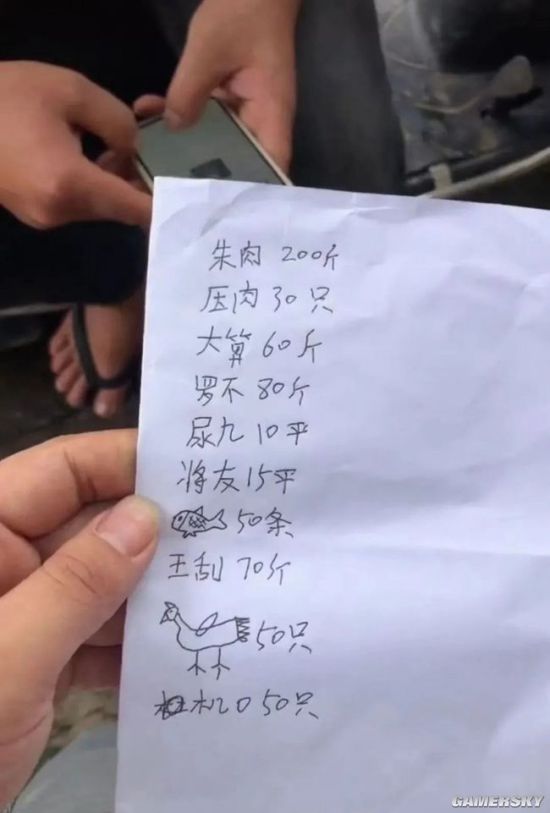 朱肉 200斤
压肉 30只
大算 60斤
罗不 80斤
尿九 10平
将友 15平
50条
王刮 70斤
50只
机 50只
GAMERSKY